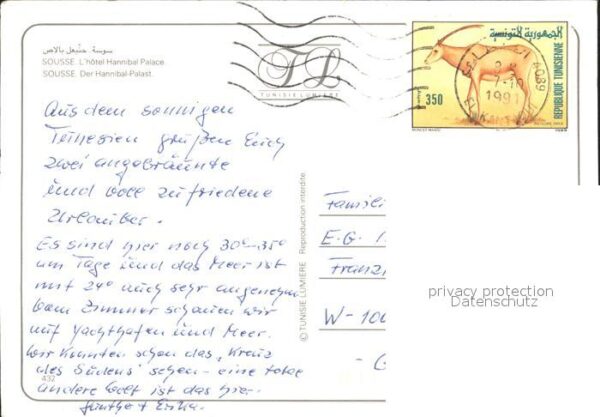 سوسة حنبعل بالاص
SOUSSE. L'hôtel Hannibal Palace.
SOUSSE. Der Hannibal-Palast.
TL
TUNISIE LUMIERE
الجمهورية التونسية
REPUBLIQUE TUNISIENNE
350
1991
4089
Aus dem sonnigen
Tunesien grüßen Euch
zwei angebräunte
und voll zufriedene
Urlauber.
Es sind hier noch 30°-35°
am Tage und das Meer ist
mit 24° auch sehr angenehm
vom Zimmer schauen wir
auf Yachthafen und Meer.
Wir konnten schon das "Kreuz
des Südens" sehen - eine tolle
andere Welt ist das hier.
Günther + Erika.
432
© TUNISIE LUMIERE Reproduction interdite
Famili
E.G.
Franz
W-100
privacy protection
Datenschutz